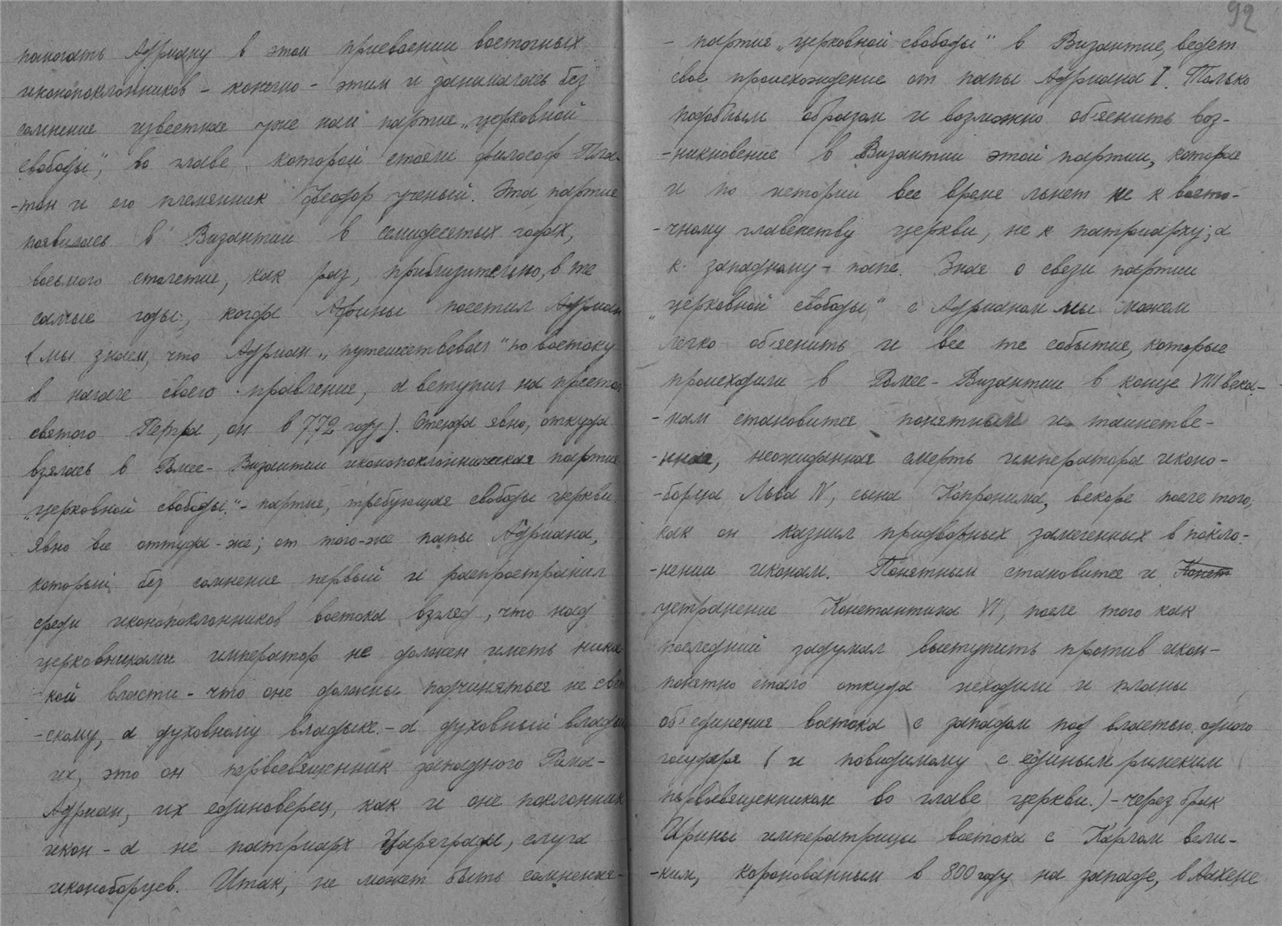 помогать Адриану в этом присвоении восточных
иконопоклонников - конечно - этим и занималась без
сомнение известная уже нам партия „церковной
свободы“, во главе которой стояли философ Пла-
-тон и его племянник Феодор ученый. Эта партие
появилась в Византии в семидесятых годах,
восьмого столетие, как раз, приблизительно, в те
самые годы, когда Афины посетил Адриан
(мы знаем, что Адриан „путешествовал“ по востоку
в начале своего правление, а вступил на престол
святого Петра, он в 772 году). Отсюда ясно, откуда
взялась в Ромее-Византии иконопоклонническая партие
„церковной свободы“ - партие, требующая свободы церкви
Явно все оттуда-же; от того-же папы Адриана,
который, без сомнение первый и распространил
среди иконопоклонников востока взгляд, что над
церковниками император не должен иметь ника-
кой власти - что оне должны подчиняться не свет
-скому, а духовному владыке - а духовный владыка
их, это он первосвященник западного Рима-
Адриан, их единоверец, как и оне поклонник
икон - а не патриарх Цареграда, слуга
иконоборцев. Итак, не может быть сомнения-
92
- партие „церковной свободы“ в Византие, ведет
свое происхождение от папы Адриана I. Только
подобным образом и возможно об'яснить воз-
-никновение в Византии этой партии, которая
и по истории все время льнет не к восто-
-чному главенству церкви, не к патриарху; а
к западному - папе. Зная о связи партии
„церковной свободы“ с Адрианом мы можем
легко об'яснить и все те события, которые
происходили в Ромее-Византии в конце VIII века.-
-нам становится понятным и таинстве-
-нная, неожиданная смерть императора иконо-
-борца Льва IV, сына Копронима, вскоре после того,
как он казнил придворных замеченных в покло-
-нении иконам. Понятным становится и Конст
устранение Константина VI, после того как
последний задумал выступить против икон-
понятно стало откуда исходили и планы
об'единения востока с западом под властью одного
государя (и повидимому с единым римским
первосвященником во главе церкви.) - через брак
Ирины императрицы востока с Карлом вели-
-ким, коронованным в 800 году на западе, в Аахене